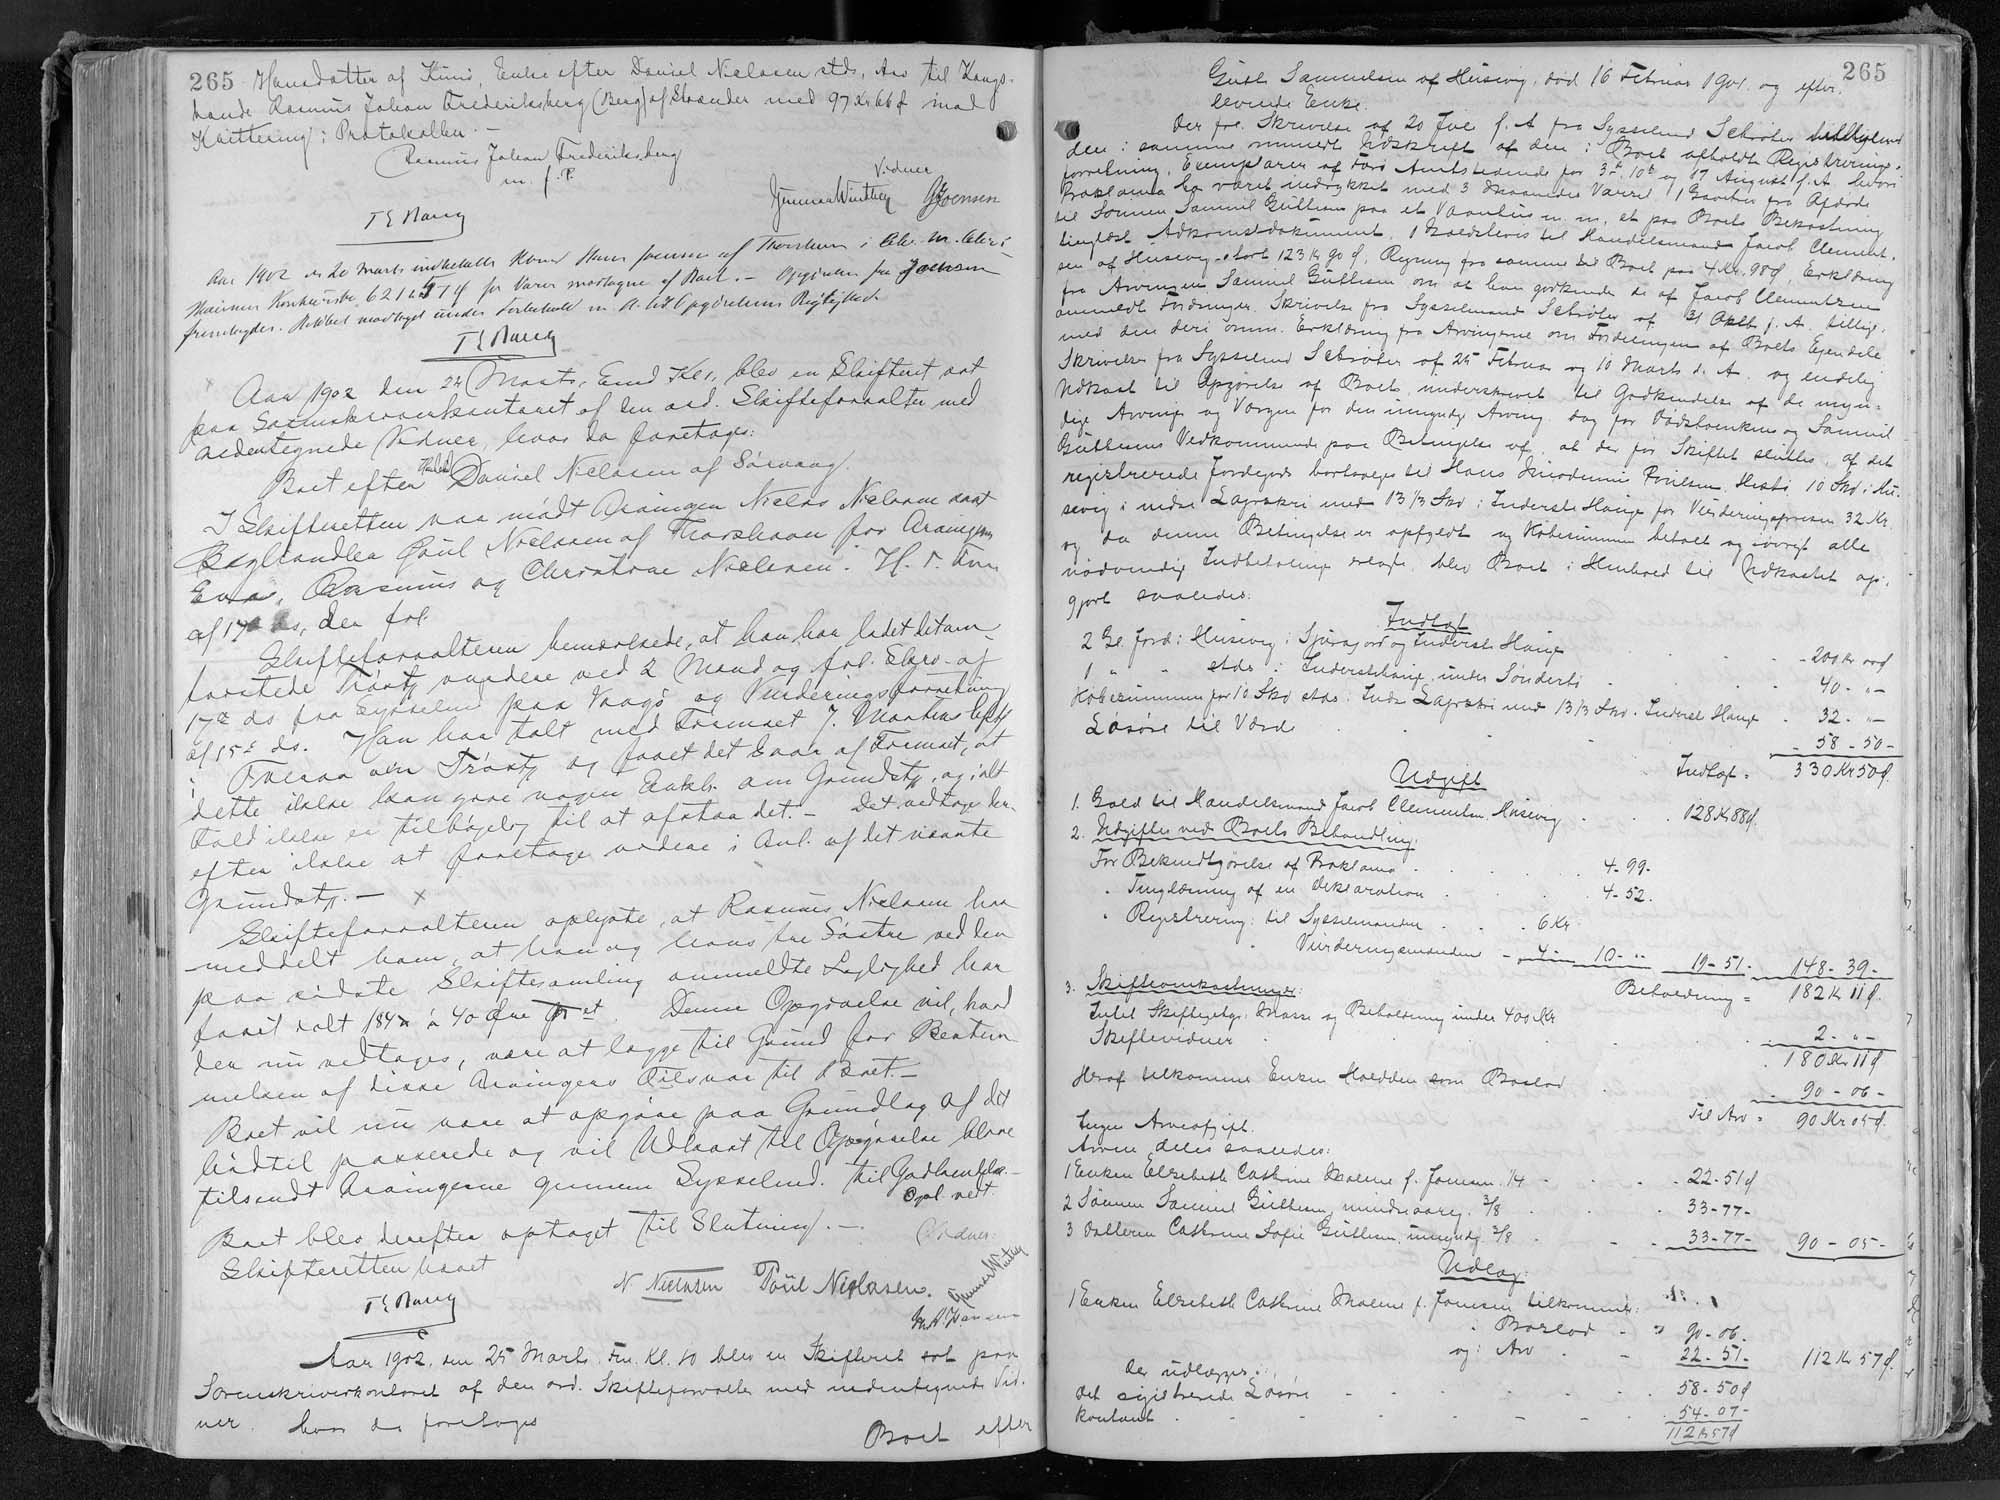 265 Hansdatter af Kunø, Enke efter Daniel Nielasen stds, Arv til Kongs-
bonde Rasmus Johan Frederiksberg (Berg) af Strænder med 97 Kr 66 Ø mod
Kvittering i Protokollen. —
Rasmus Johan Frederiksberg
m. f. P.
Vidner
Gunnar Winther GJoensen
T E Barry
Aar 1902 den 20 Marts indbetalte Hans Joensen af Thorshavn i
Konkursbo, for Varer modtagne af Boet. — Opgivelse fra Joensen
fremlagdes. Beløbet modtaget under Forbehold m. H. t. Opgivelsens Rigtighed.
T E Barry
Aar 1902 den 24 Marts, Emd Kl. 1, blev en Skifteret sat
paa Sorenskriverkontoret af den ord. Skifteforvalter med
nedentegnede Vidner, hvor da foretoges:
Boet efter Daniel Nielasen af Sørvaag.
I Skifteretten var mødt Arvingen Nielas Nielasen samt
Boghandler Poul Nielasen af Thorshavn for Arvingerne
Eva, Rasmus og Christine Nielasen. H. T. Forr
af 17 ds, der frl.
Skifteforvalteren bemærkede, at han har ladet det am-
fortede Trøstj vurdere ved 2 Mænd og frl. Skriv. af
17de ds fra Sysselmd paa Vaagø og Vurderingsforretning
af 15de ds. Han har talt med Firmaet J. Mortensens Eftf
i Fuerø om Trøstj og faaet det Svar af Firmaet, at
dette ikke kan gøre nogen Enkb. om Grundstj, og i alt
Fald ikke er tilbøjelig til at afstaa det. — Det vedtoges her-
efter ikke at foretage videre i Anl. af det nævnte
Grundstj. — x
Skifteforvalteren oplyste, at Rasmus Nielasen har
meddelt ham, at han og hans tre Søstre ved den
paa sidste Skiftesamling anmeldte Lejlighed har
faaet solt 184 à 40 Øre Denne Opgivelse vil, hvad
der nu vedtoges, være at lægge til Grund for Bestem-
melsen af disse Arvingers Tilsvar til Boet. —
Boet vil nu være at opgøre paa Grundlag af det
hidtil passerede og vil Udkast til Opgørelse blive
tilsendt Arvingerne gennem Sysselmd. til Godkendelse. —
Opl. vedt.
Boet blev derefter optaget til Slutning. —
Skifteretten hævet
Vidner:
T E Barry
N Nielasen Poul Nielasen. Gunnar Winther
M. A. Hansen
Aar 1902, den 25 Marts, Fm. Kl. 10 blev en Skifteret sat paa
Sorenskriverkontoret af den ord. Skifteforvalter med nedentegnede Vid-
ner. hvor da foretoges
Boet efter
265
Guth Samuelsen af Husevig, død 16 Februar 1901. og efter-
levende Enke.
Der frl. Skrivelse af 20 Juli f. A. fra Sysselmd Schrøter
den i samme ommeldte Udskrift af den i Boet afholdte Registrerings-
forretning, Exemplarer af Færø Amtstidende for 3de, 10de og 17 August f. A. hvori
Proklama har været indrykket med 3 Maaneders Varsel, 1 Gavebrev fra Afdøde
til Sønnen Samuel Guthesen paa et Vaanhus m. m. et paa Boets Bekostning
tinglæst Adkomstdokument, 1 Gældsbevis til Handelsmand Jacob Clement-
sen af Husevig stort 123 Kr 90 Ø, Regning fra samme til Boet paa 4 Kr. 98 Ø, Erklæring
fra Arvingen Samuel Guthesen om at han godkender de af Jacob Clementsen
anmeldte Fordringer, Skrivelse fra Sysselmand Schrøter af 31 Oktb f. A. tillige-
med den deri omm. Erklæring fra Arvingerne om Fordelingen af Boets Ejendele
Skrivelser fra Sysselmd Schrøter af 25 Februar og 10 Marts d. A. og endelig
Udkast til Opgørelse af Boet, underskrevet til Godkendelse af de myn-
dige Arvinger og Værgen for den umyndige Arving, dog for Dødsboenken og Samuel
Guthesens Vedkommende paa Betingelse af, at der før Skiftet sluttes, af det
registrerede Jordegods bortsælges til Hans Poulsen, Hesti 10 Skd i Hu-
sevig i indre Lagrskri med 13 1/3 Skd i Inderste Hauge for Vurderingsprisen 32 Kr.
og da denne Betingelse er opfyldt og Købesummen betalt og iøvrigt alle
nødvendige Indbetalinger erlagt, blev Boet i Henhold til Udkastet op-
gjort saaledes:
Indtægt
2 Gl. Jord i Husevig i og Inderste Hauge . . . 200 Kr 00 Ø
1 " " stds i Inderstehauge, under Sønderhs . . . 40 - " -
Købesummen for 10 Skd stds i Indre Lagrskri med 13 1/3 Skd i Inderst Hauge . 32 - " -
Løsøre til Værdi . . . 58 - 50 -
Indtægt = 330 Kr 50 Ø.
Udgift
1. Gæld til Handelsmand Jacob Clementsen, Husevig . . . 128 Kr 88 Ø.
2. Udgifter ved Boets Behandling:
For Bekendtgørelse af Proklama . . . 4 - 99 -
" Tinglæsning af en Deklaration . . . 4 - 52.
" Registrering: til Sysselmanden . . . 6 Kr
" Vurderingsmændene - 4 - 10 - " 19 - 51 - 148 - 39 -
Beholdning = 182 Kr 11 Ø.
3. Skifteomkostninger:
Intet Skiftegebyr. Masse og Beholdning under 400 Kr
Skiftevidner . . . 2 - " -
180 Kr 11 Ø
Heraf tilkommer Enken Halvdelen som Boslod . . . 90 - 06 -
Til Arv = 90 Kr 05 Ø.
Ingen Arveafgift.
Arven deles saaledes:
1 Enken Elsebeth Cathrine Malene f. Joensen 1/4 . . . 22 - 51 Ø
2 Sønnen Samuel Guthesen, mindreaarig 3/8 . . . 33 - 77 -
3 Datteren Cathrine Sofie Guthesen, umyndig 3/8 . . . 33 - 77 - 90 - 05 -
Udlæg:
1 Enken Elsebeth Cathrine Malene f. Joensen tilkommer:
i Boslod - " 90 - 06 -
og i Arv - 22 - 51 - 112 Kr 57 Ø.
Der udlægges:
det registrerede Løsøre . . . 58 - 50 Ø
kontant . . . 54 - 07 -
112 Kr 57 Ø